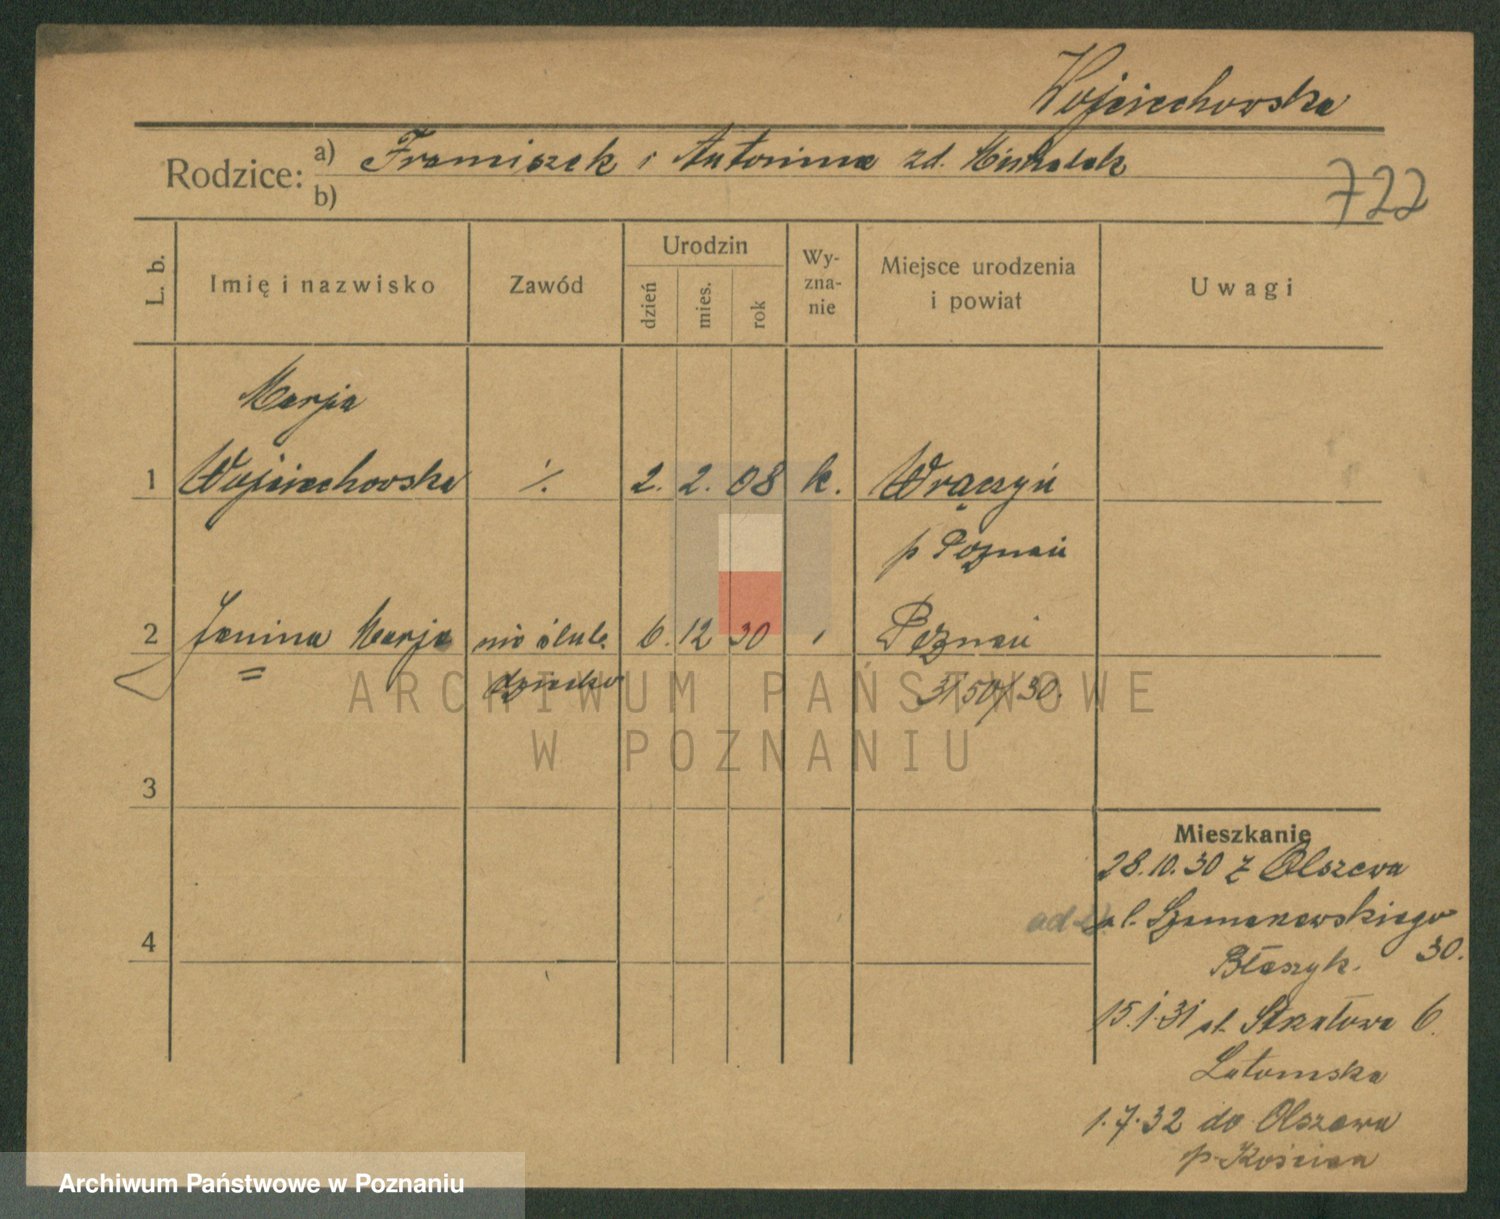 Wojciechowska
Rodzice: a) Franciszek i Antonina zd.
b)
722
L. b.
Imię i nazwisko
Zawód
Urodzin
dzień
mies.
rok
Wy-
zna-
nie
Miejsce urodzenia
i powiat
Uwagi
Marja
1 Wojciechowska ·/. 2. 2. 08 k. Wrączyń
p Poznań
2 Janina Marja nieślub. 6. 12 30 Poznań
dziecko
3
4
Mieszkanie
28.10.30 z Olszewa
ul. Szamarzewskiego
30.
Błaszyk.
15.1.31 ul. Strzałowa 6.
Lutomska
1.7.32 do Olszewa
p. Kościan
ARCHIWUM PAŃSTWOWE
W POZNANIU
Archiwum Państwowe w Poznaniu